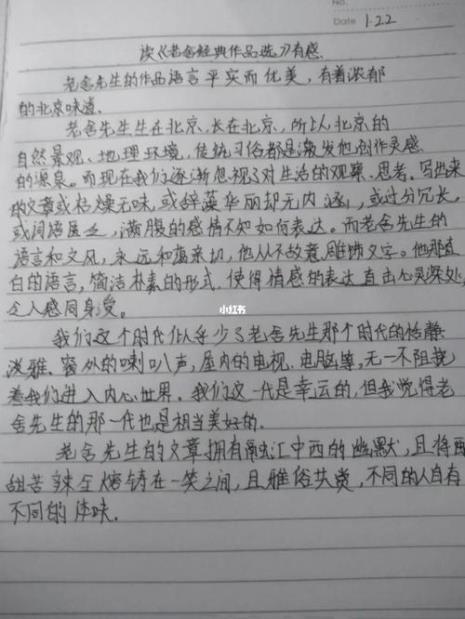 No.
Date 1.22
读《老舍经典作品选》有感.
老舍先生的作品语言平实而优美，有着浓郁
的北京味道.
老舍先生生在北京、长在北京，所以北京的
自然景观、地理环境，传统习俗都是激发他创作灵感
的源泉。而现在我们逐渐忽视了对生活的观察、思考，写出来
的文章或枯燥无味，或辞藻华丽却无内涵，或过分冗长，
或词语匮乏，满腹的感情不知如何表达。而老舍先生的
语言和文风，永远和蔼亲切，他从不故意雕饰文字。他那直
白的语言，简洁朴素的形式，使得情感的表达直击心灵深处，
令人感同身受。
小红书
我们这个时代似乎少了老舍先生那个时代的恬静
淡雅、窗外的喇叭声，屋内的电视、电脑等，无一不阻挠
着我们进入内心世界。我们这一代是幸运的，但我觉得老
舍先生的那一代也是相当美好的.
老舍先生的文章拥有融汇中西的幽默，且将酸
甜苦辣全熔铸在一笑之间，且雅俗共赏，不同的人自有
不同的体味.